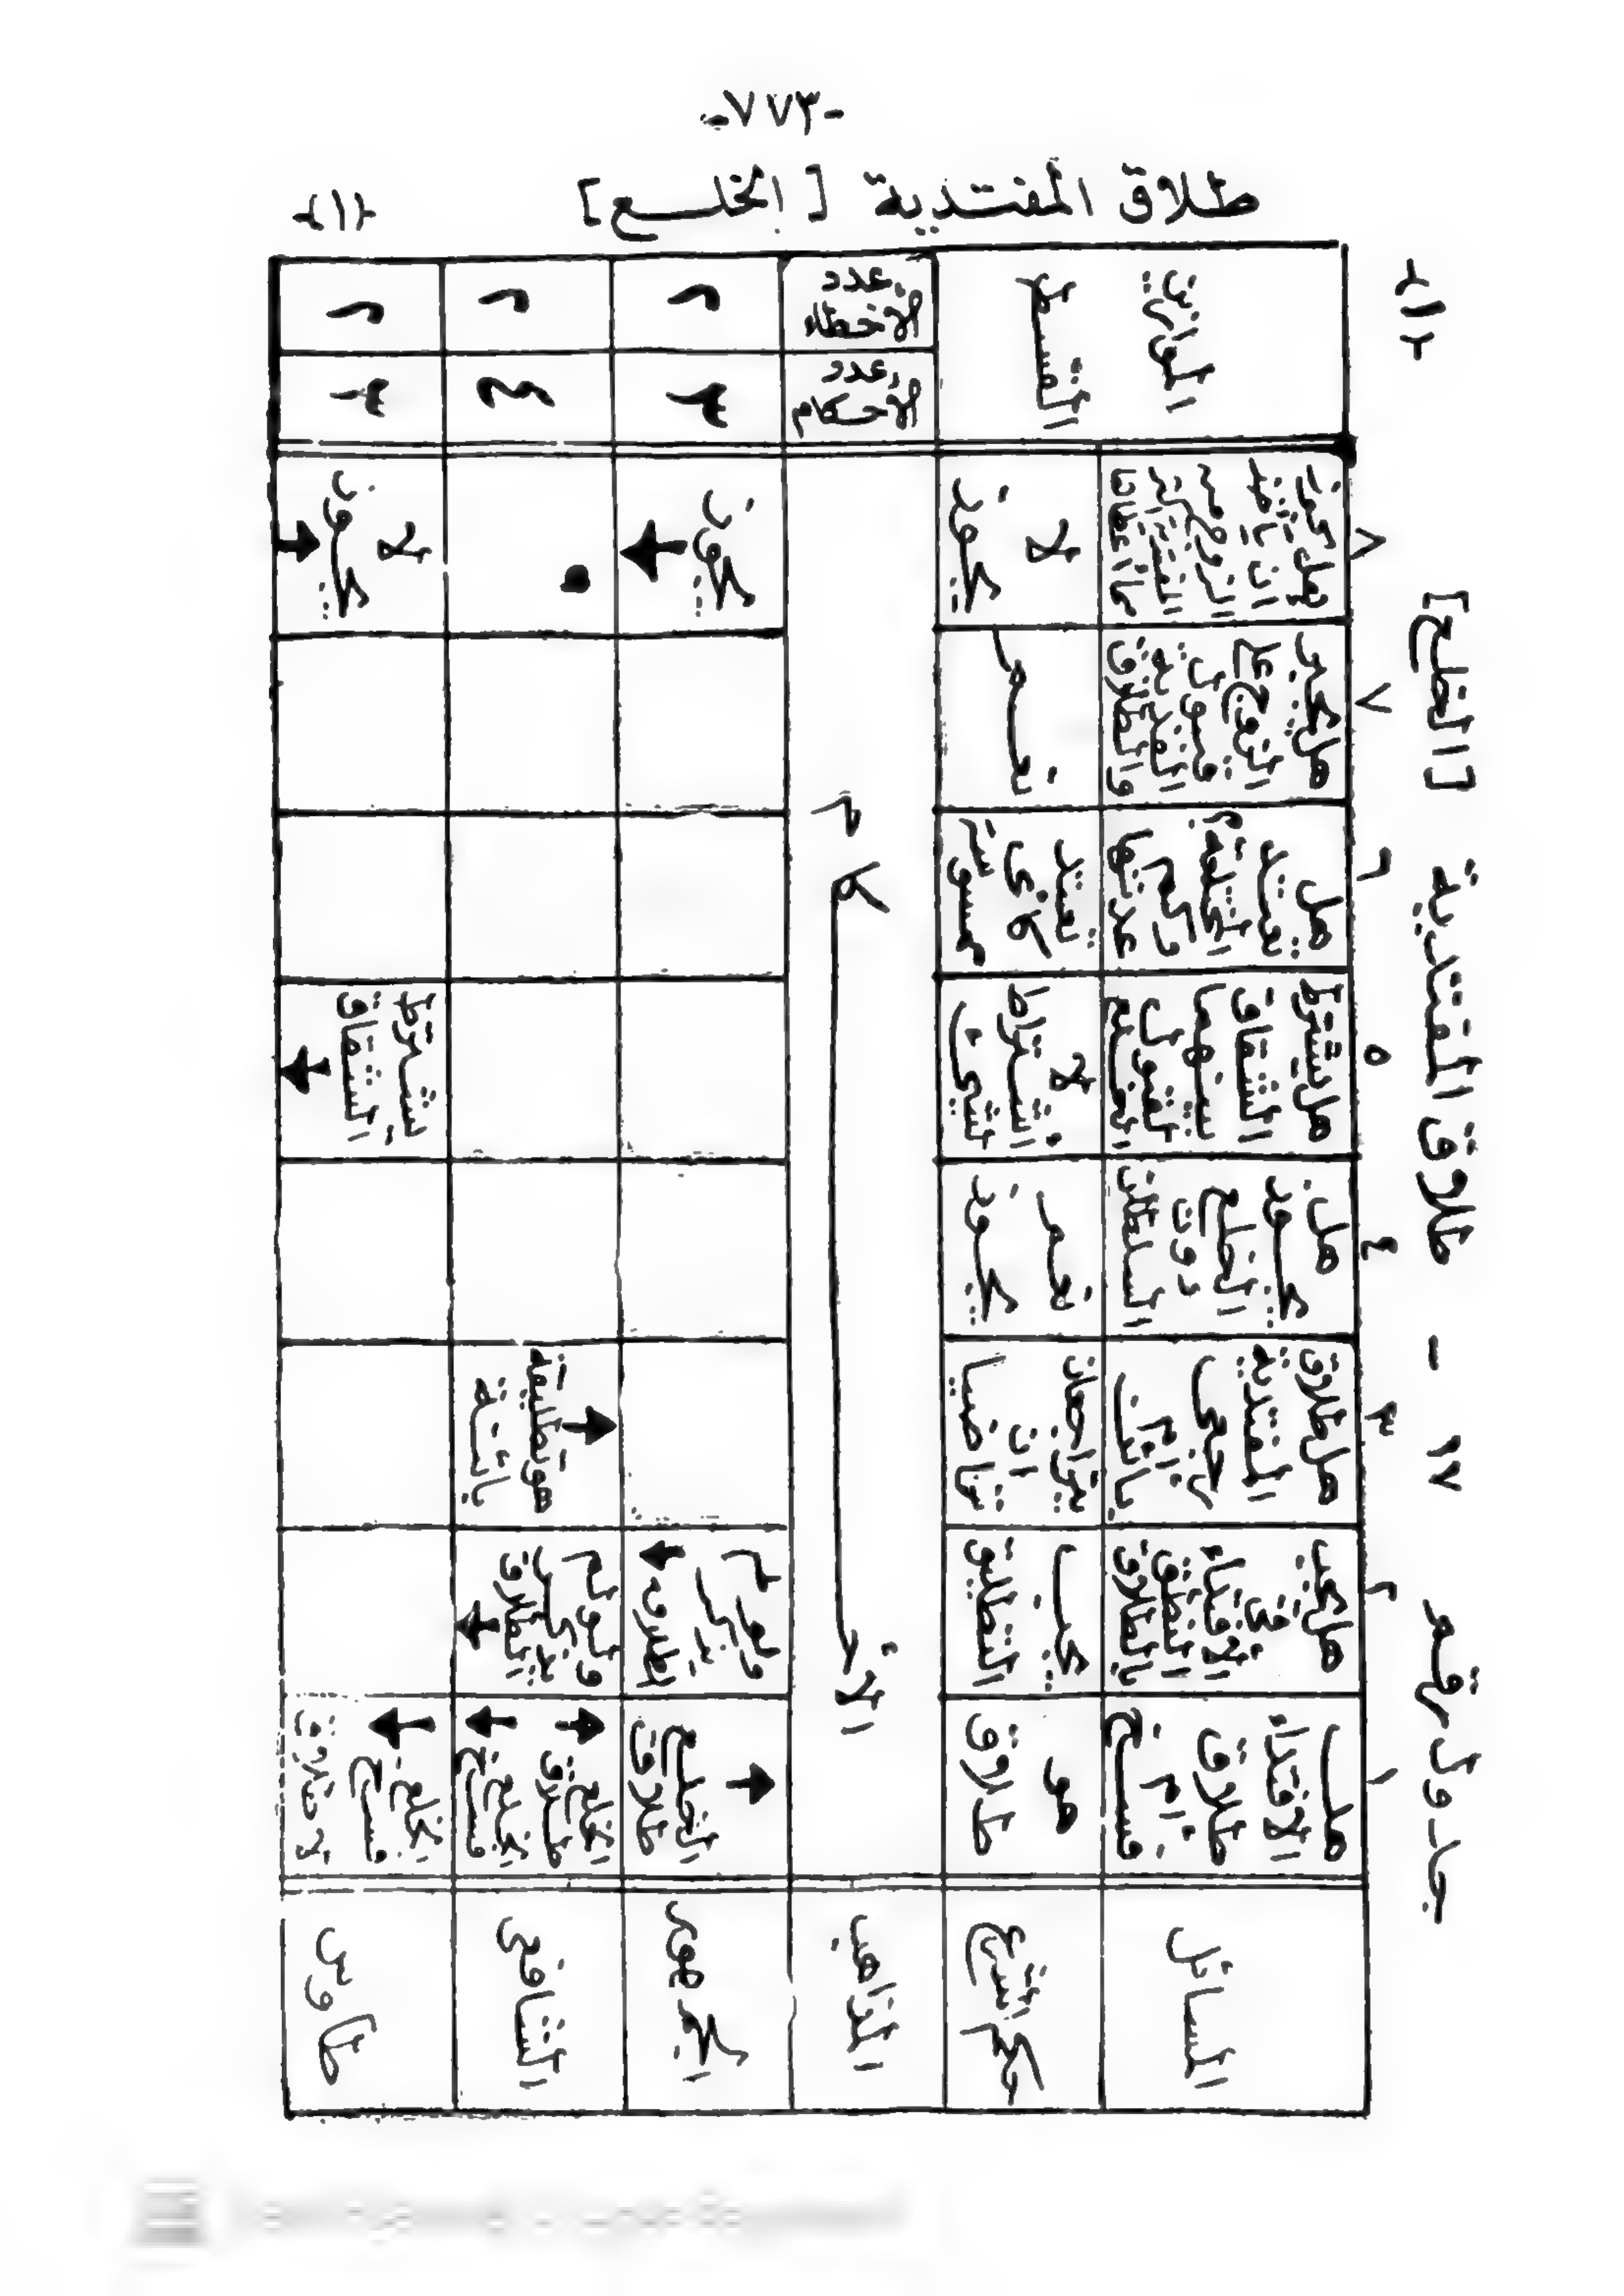 -٧٧٣-
طلاق المفتدية [الخلع]
٢/١
جدول رقم ١٧ - طلاق المفتدية [الخلع]
٢/١
المسائل
١
هل
الافتداء
طلاق
أم
فسخ
٢
هل يجب
في
الافتداء
النطق
بالطلاق
٣
هل طلاق
المفتدية
رجعي
أم
بائن
٤
هل
يجوز
الخلع
دون
السلطان
٥
هل يشترط
الشقاق
بينهما
لقبول
الخلع
٦
هل
تعتد
المختلعة؟
وكم
عدتها
٧
هل يجبر
الزوج على
قبول
الفدية
والطلاق
٨
هل يجوز
ان يأخذ
الزوج من
المفتدية
الموازين
القسط
حكم الشرع
هو
طلاق
يجب
التطليق
يتراجعان
ان
تراضيا
نعم
يجوز
لا
اشتراط
تعتد
كأي
نعم
لا
يجوز
المذاهب
الأحكام
عدد الأحكام
عدد الأخطاء
الجمهور
الخلع
طلاق
ولو لم
يذكر
الطلاق
يجوز
٣
٢
الشافعي
الخلع
طلاق
الخلع
فسخ
ولو لم
يذكر
الطلاق
هو تطليقة
بائنة
٤
٢
طاوس
الخلع
فسخ
لا طلاق
يشترط
الشقاق
لا
يجوز
٣
٢